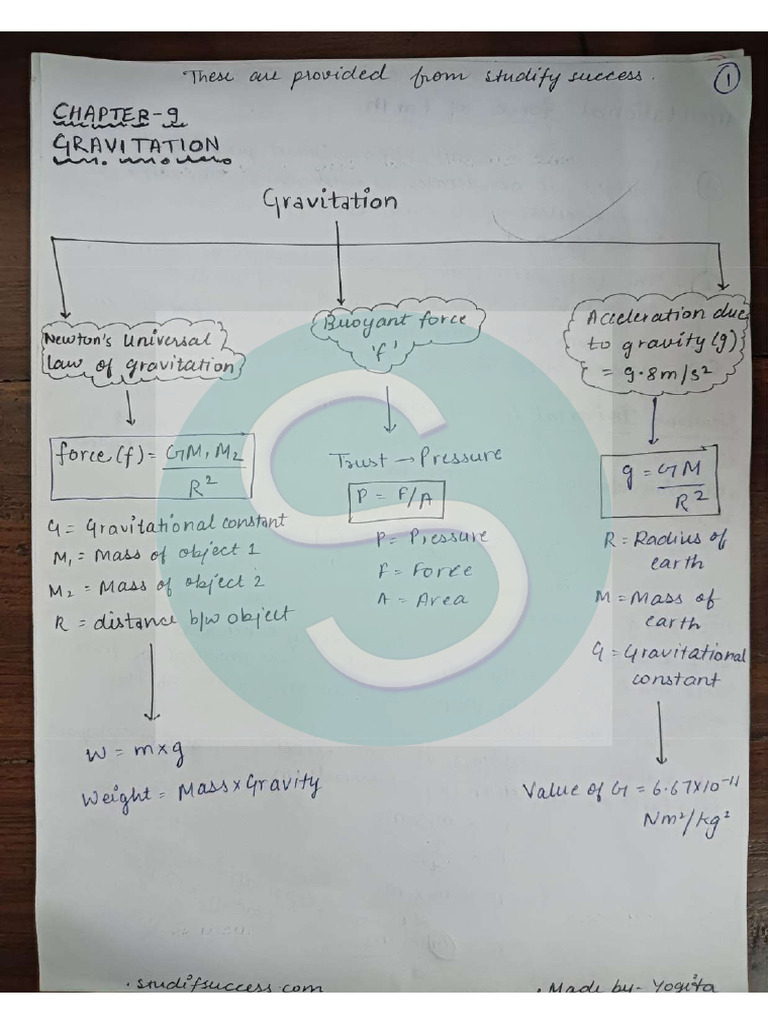 These are provided from studify success.
1
CHAPTER-9
GRAVITATION
Gravitation
Newton's Universal
law of gravitation
force (f) = GM₁M₂
R²
G = Gravitational constant
M₁ = Mass of object 1
M₂ = Mass of object 2
R = distance b/w object
W = m×g
Weight = Mass×Gravity
Buoyant force
'f'
Trust → Pressure
P = F/A
P = Pressure
F = Force
A = Area
Acceleration due
to gravity (g)
= 9.8m/s²
g = GM
R²
R = Radius of
earth
M = Mass of
earth
G = Gravitational
constant
Value of G = 6.67×10⁻¹¹
Nm²/kg²
. studifsuccess.com
. Made by- Yogita